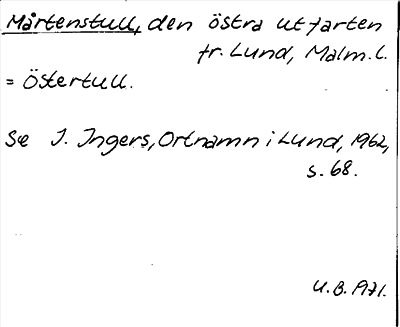 Mårtenstull, den östra utfarten
fr. Lund, Malm. l.
= Östertull.
Se J. Ingers, Ortnamn i Lund, 1962,
s. 68.
U.B. 1971.